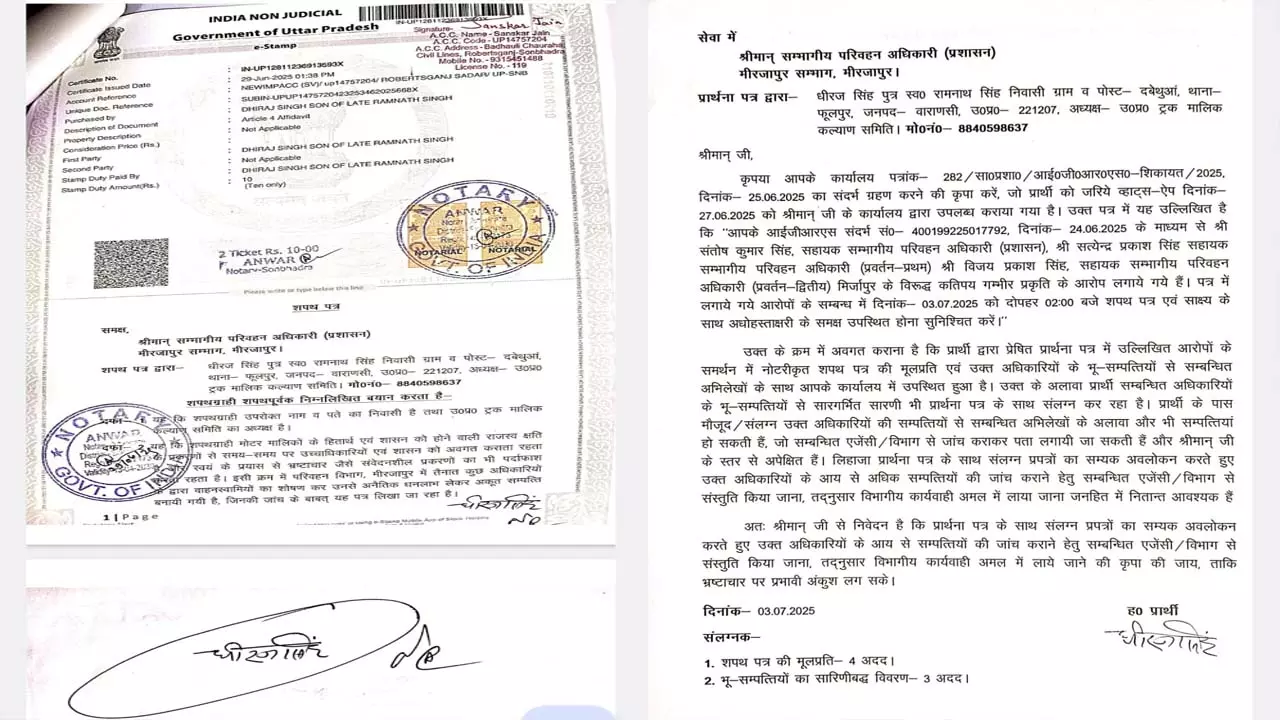 INDIA NON JUDICIAL
Government of Uttar Pradesh
e-Stamp
IN-UP12811236913693X
Signature- Sanskar Jain
A.C.C. Name - Sanskar Jain
A.C.C. Code - UP14757204
A.C.C. Address - Badhauli Chauraha,
Civil Lines, Robertsganj-Sonbhadra
Mobile No. - 9315451488
License No. - 119
Certificate No. : IN-UP12811236913693X
Certificate Issued Date : 29-Jun-2025 01:38 PM
Account Reference : NEWIMPACC (SV)/ up14757204/ ROBERTSGANJ SADAR/ UP-SNB
Unique Doc. Reference : SUBIN-UPUP1475720423253462025668X
Purchased by : DHIRAJ SINGH SON OF LATE RAMNATH SINGH
Description of Document : Article 4 Affidavit
Property Description : Not Applicable
Consideration Price (Rs.) :
First Party : DHIRAJ SINGH SON OF LATE RAMNATH SINGH
Second Party : Not Applicable
Stamp Duty Paid By : DHIRAJ SINGH SON OF LATE RAMNATH SINGH
Stamp Duty Amount(Rs.) : 10
(Ten only)
NOTARY
ANWAR
NOTARIAL NOTARIAL
GOVT. OF INDIA
2 Ticket Rs. 10-00
ANWAR
Notary-Sonbhadra
Please write or type below this line
शपथ पत्र
समक्ष,
श्रीमान् सम्भागीय परिवहन अधिकारी (प्रशासन)
मीरजापुर सम्भाग, मीरजापुर।
शपथ पत्र द्वारा- धीरज सिंह पुत्र स्व0 रामनाथ सिंह निवासी ग्राम व पोस्ट- दबेथुआं,
थाना- फूलपुर, जनपद- वाराणसी, उ0प्र0- 221207, अध्यक्ष- उ0प्र0
ट्रक मालिक कल्याण समिति। मो0नं0- 8840598637
शपथग्रही शपथपूर्वक निम्नलिखित बयान करता है-
यह कि शपथग्रही उपरोक्त नाम व पते का निवासी है तथा उ0प्र0 ट्रक मालिक
कल्याण समिति का अध्यक्ष है।
यह कि शपथग्रही मोटर मालिकों के हितार्थ एवं शासन को होने वाली राजस्व क्षति
के प्रकरणों से समय-समय पर उच्चाधिकारियों एवं शासन को अवगत कराता रहता
स्वयं के प्रयास से भ्रष्टाचार जैसे संवेदनशील प्रकरणों का भी पर्दाफाश
रहता है। इसी क्रम में परिवहन विभाग, मीरजापुर में तैनात कुछ अधिकारियों
द्वारा वाहनस्वामियों का शोषण कर उनसे अनैतिक धनलाभ लेकर अकूत सम्पत्ति
बनायी गयी है, जिनकी जांच के बाबत् यह पत्र लिखा जा रहा है।
NOTARY
ANWAR
GOVT. OF INDIA
1 | Page
धीरज सिंह
धीरज सिंह
सेवा में
श्रीमान् सम्भागीय परिवहन अधिकारी (प्रशासन)
मीरजापुर सम्भाग, मीरजापुर।
प्रार्थना पत्र द्वारा- धीरज सिंह पुत्र स्व0 रामनाथ सिंह निवासी ग्राम व पोस्ट- दबेथुआं, थाना-
फूलपुर, जनपद- वाराणसी, उ0प्र0- 221207, अध्यक्ष- उ0प्र0 ट्रक मालिक
कल्याण समिति। मो0नं0- 8840598637
श्रीमान् जी,
कृपया आपके कार्यालय पत्रांक- 282/सा0प्रशा0/आई0जी0आर0एस0-शिकायत/2025,
दिनांक- 25.06.2025 का संदर्भ ग्रहण करने की कृपा करें, जो प्रार्थी को जरिये व्हाट्स-ऐप दिनांक-
27.06.2025 को श्रीमान् जी के कार्यालय द्वारा उपलब्ध कराया गया है। उक्त पत्र में यह उल्लिखित है
कि "आपके आईजीआरएस संदर्भ सं0- 400199225017792, दिनांक- 24.06.2025 के माध्यम से श्री
संतोष कुमार सिंह, सहायक सम्भागीय परिवहन अधिकारी (प्रशासन), श्री सत्येन्द्र प्रकाश सिंह सहायक
सम्भागीय परिवहन अधिकारी (प्रवर्तन-प्रथम) श्री विजय प्रकाश सिंह, सहायक सम्भागीय परिवहन
अधिकारी (प्रवर्तन-द्वितीय) मिर्जापुर के विरूद्ध कतिपय गम्भीर प्रकृति के आरोप लगाये गये हैं। पत्र में
लगाये गये आरोपों के सम्बन्ध में दिनांक- 03.07.2025 को दोपहर 02:00 बजे शपथ पत्र एवं साक्ष्य के
साथ अधोहस्ताक्षरी के समक्ष उपस्थित होना सुनिश्चित करें।"
उक्त के क्रम में अवगत कराना है कि प्रार्थी द्वारा प्रेषित प्रार्थना पत्र में उल्लिखित आरोपों के
समर्थन में नोटरीकृत शपथ पत्र की मूलप्रति एवं उक्त अधिकारियों के भू-सम्पत्तियों से सम्बन्धित
अभिलेखों के साथ आपके कार्यालय में उपस्थित हुआ है। उक्त के अलावा प्रार्थी सम्बन्धित अधिकारियों
के भू-सम्पत्तियों से सारगर्भित सारणी भी प्रार्थना पत्र के साथ संलग्न कर रहा है। प्रार्थी के पास
मौजूद/संलग्न उक्त अधिकारियों की सम्पत्तियों से सम्बन्धित अभिलेखों के अलावा और भी सम्पत्तियां
हो सकती हैं, जो सम्बन्धित एजेंसी/विभाग से जांच कराकर पता लगायी जा सकती हैं और श्रीमान् जी
के स्तर से अपेक्षित हैं। लिहाजा प्रार्थना पत्र के साथ संलग्न प्रपत्रों का सम्यक अवलोकन करते हुए
उक्त अधिकारियों के आय से अधिक सम्पत्तियों की जांच कराने हेतु सम्बन्धित एजेंसी/विभाग से
संस्तुति किया जाना, तद्नुसार विभागीय कार्यवाही अमल में लाया जाना जनहित में नितान्त आवश्यक हैं
अतः श्रीमान् जी से निवेदन है कि प्रार्थना पत्र के साथ संलग्न प्रपत्रों का सम्यक अवलोकन
करते हुए उक्त अधिकारियों के आय से सम्पत्तियों की जांच कराने हेतु सम्बन्धित एजेंसी/विभाग से
संस्तुति किया जाना, तद्नुसार विभागीय कार्यवाही अमल में लाये जाने की कृपा की जाय, ताकि
भ्रष्टाचार पर प्रभावी अंकुश लग सके।
दिनांक- 03.07.2025
ह0 प्रार्थी
धीरज सिंह
संलग्नक-
1. शपथ पत्र की मूलप्रति- 4 अदद।
2. भू-सम्पत्तियों का सारिणीबद्ध विवरण- 3 अदद।